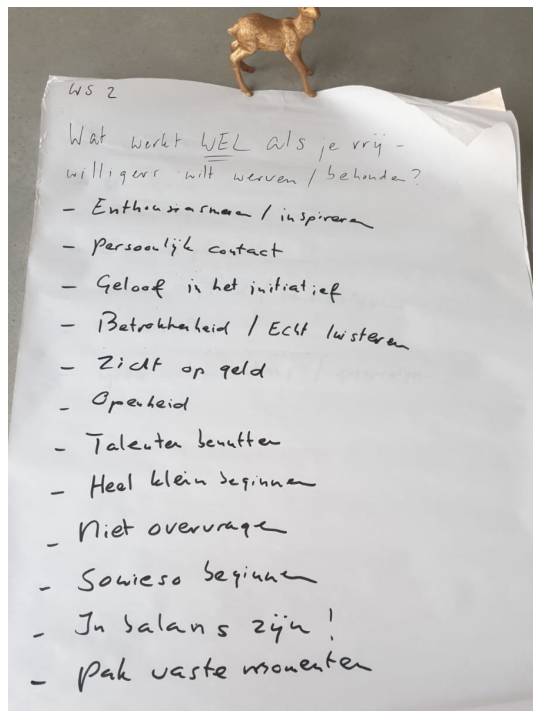 WS 2
Wat werkt WEL als je vrij-
willigers wilt werven / behouden?
- Enthousiasmeren / inspireren
- Persoonlijk contact
- Geloof in het initiatief
- Betrokkenheid / Echt luisteren
- Zicht op geld
- Openheid
- Talenten benutten
- Heel klein beginnen
- Niet overvragen
- Sowieso beginnen
- In balans zijn!
- Pak vaste momenten